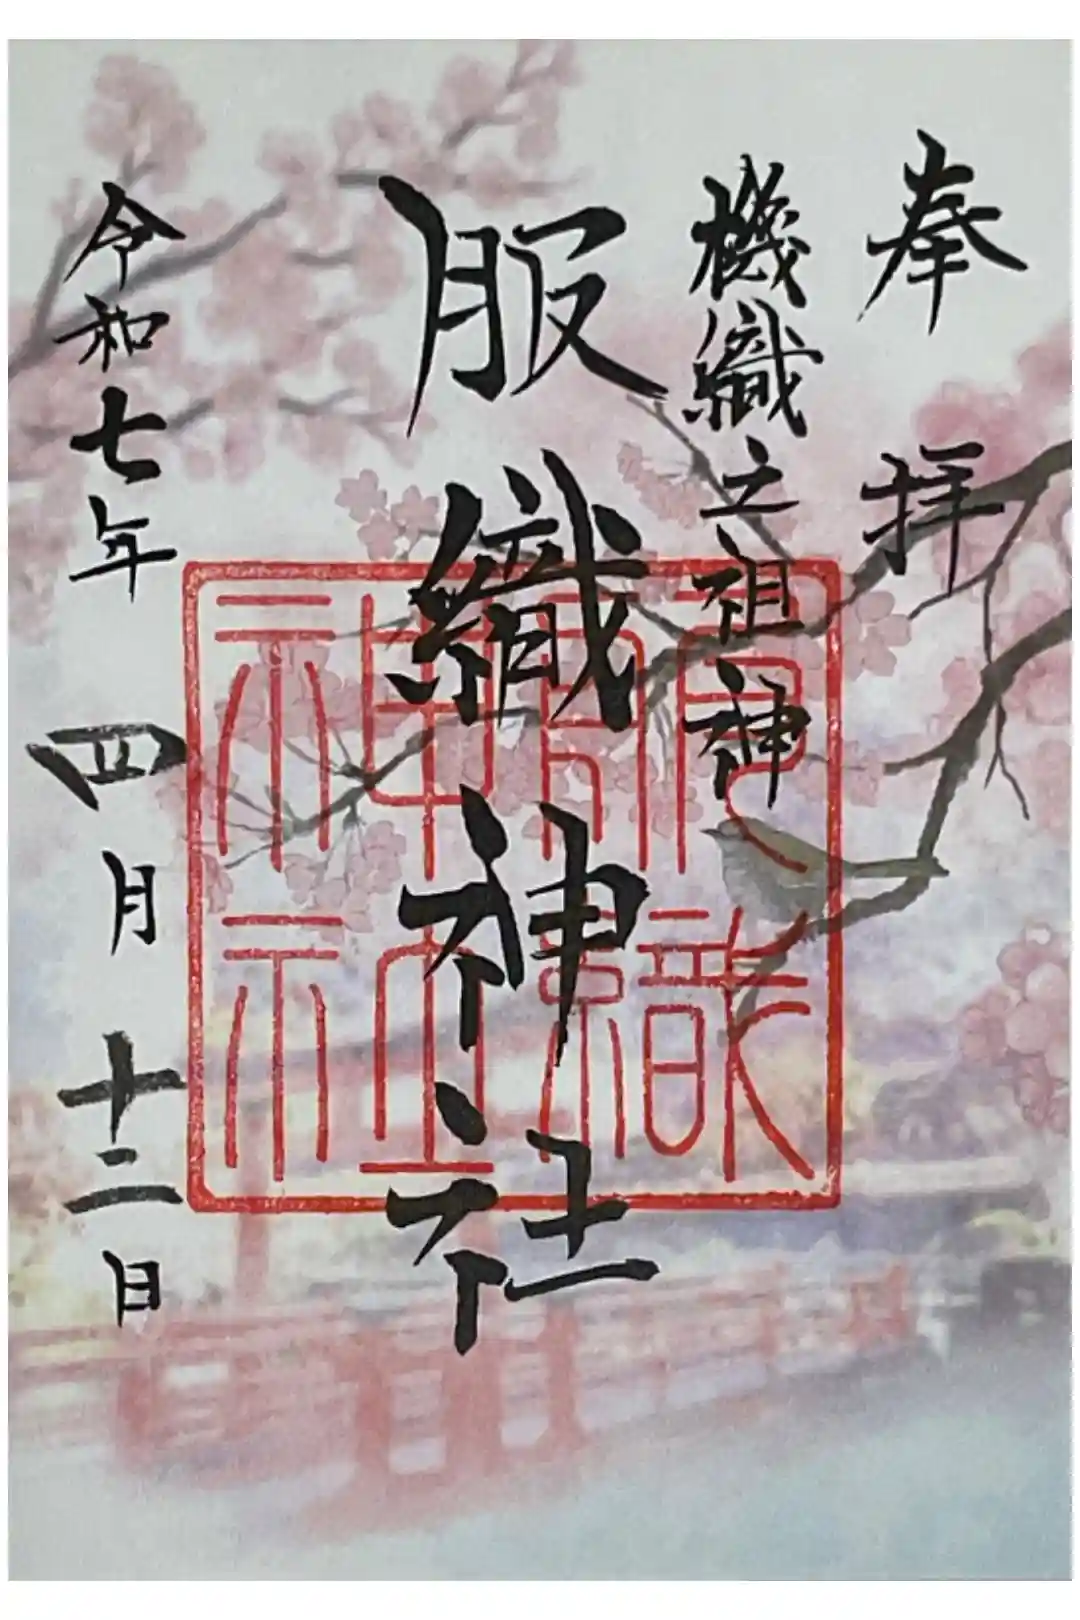 奉拝
機織之祖神
服織神社
服織神社
令和七年四月十二日